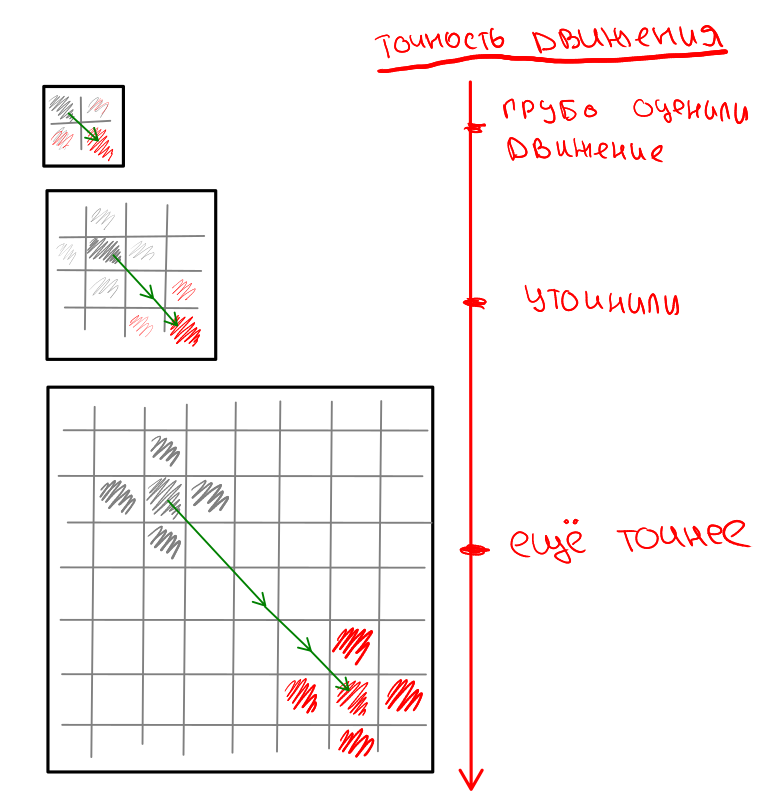 точность движения
грубо оценили
движение
уточнили
ещё точнее